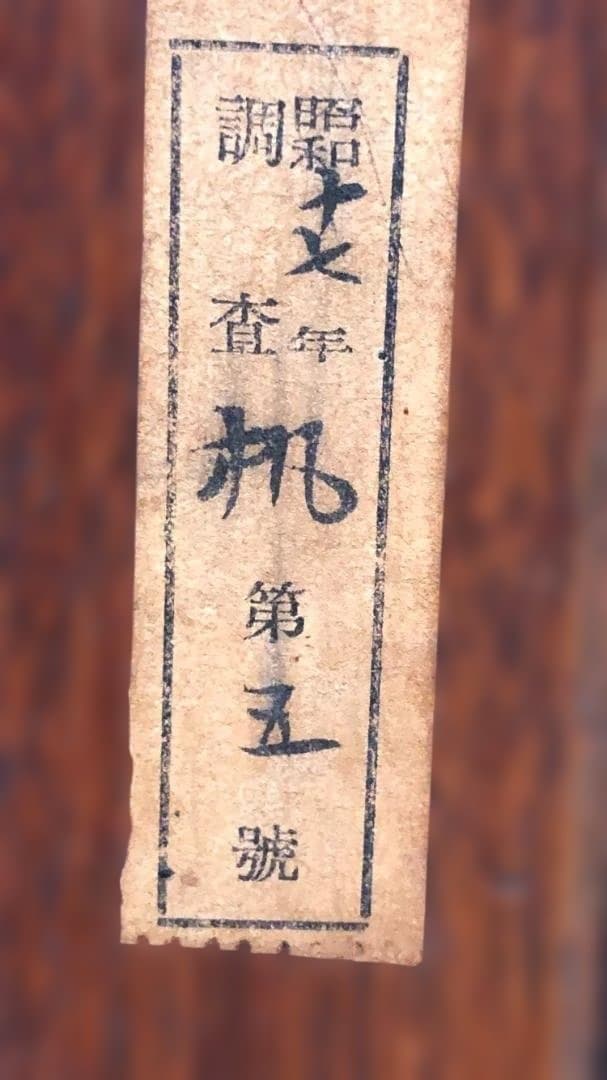 昭和十七年
調查
机第五號